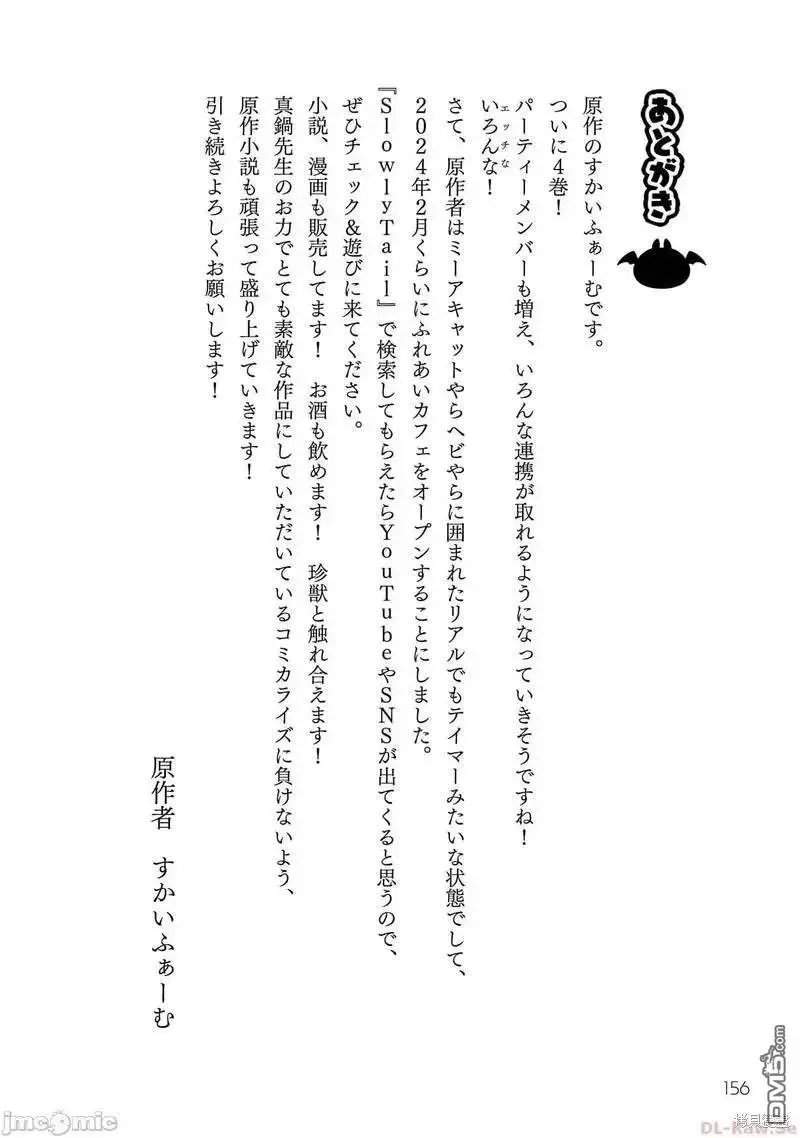 あとがき
原作のすかいふぁーむです。
ついに4巻!
パーティーメンバーも増え、いろんな連携が取れるようになっていきそうですね!
いろんな!
エッチな
さて、原作者はミーアキャットやらヘビやらに囲まれたリアルでもテイマーみたいな状態でして、
2024年2月くらいにふれあいカフェをオープンすることにしました。
『SlowlyTail』で検索してもらえたらYouTubeやSNSが出てくると思うので、
ぜひチェック&遊びに来てください。
小説、漫画も販売してます! お酒も飲めます! 珍獣と触れ合えます!
真鍋先生のお力でとても素敵な作品にしていただいているコミカライズに負けないよう、
原作小説も頑張って盛り上げていきます!
引き続きよろしくお願いします!
原作者 すかいふぁーむ
156
jmcomic
DM5.com
拷貝漫畫
DL-Raw.Se